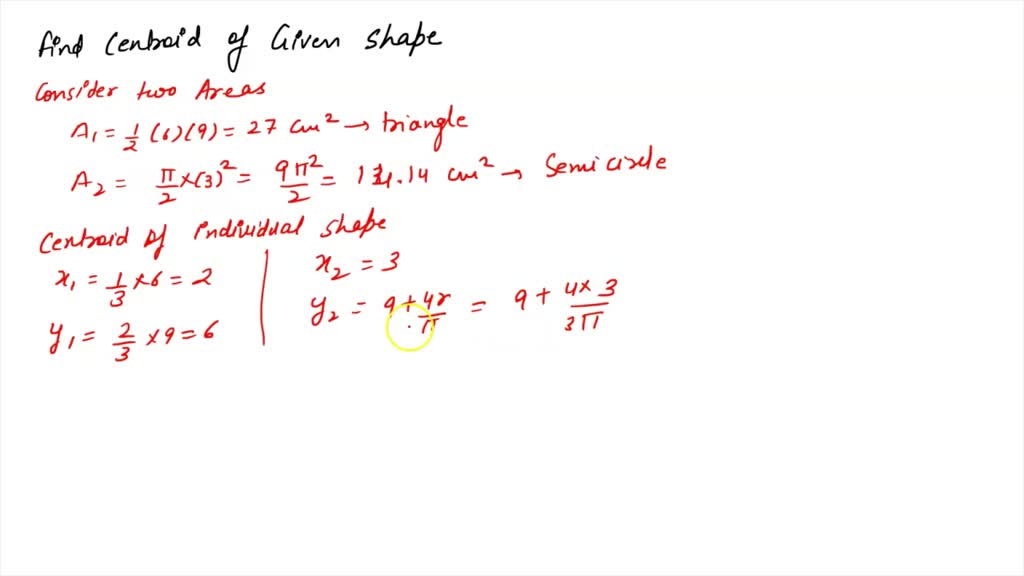 find Centroid of Given shape
Consider two Areas
A₁ = 1/2 (6)(9) = 27 cm² → triangle
A₂ = π/2 × (3)² = 9π²/2 = 14.14 cm² → Semicircle
Centroid of individual shape
x₁ = 1/3 × 6 = 2
y₁ = 2/3 × 9 = 6
x₂ = 3
y₂ = 9 + 4r/π = 9 + 4×3/3π